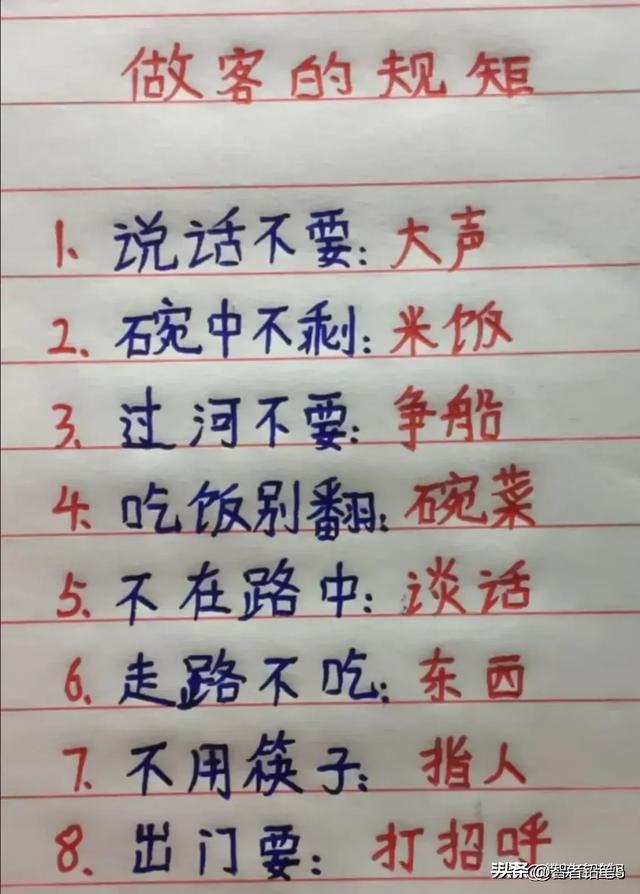 做客的规矩
1. 说话不要：大声
2. 碗中不剩：米饭
3. 过河不要：争船
4. 吃饭别翻：碗菜
5. 不在路中：谈话
6. 走路不吃：东西
7. 不用筷子：指人
8. 出门要：打招呼
头条@智者铅笔